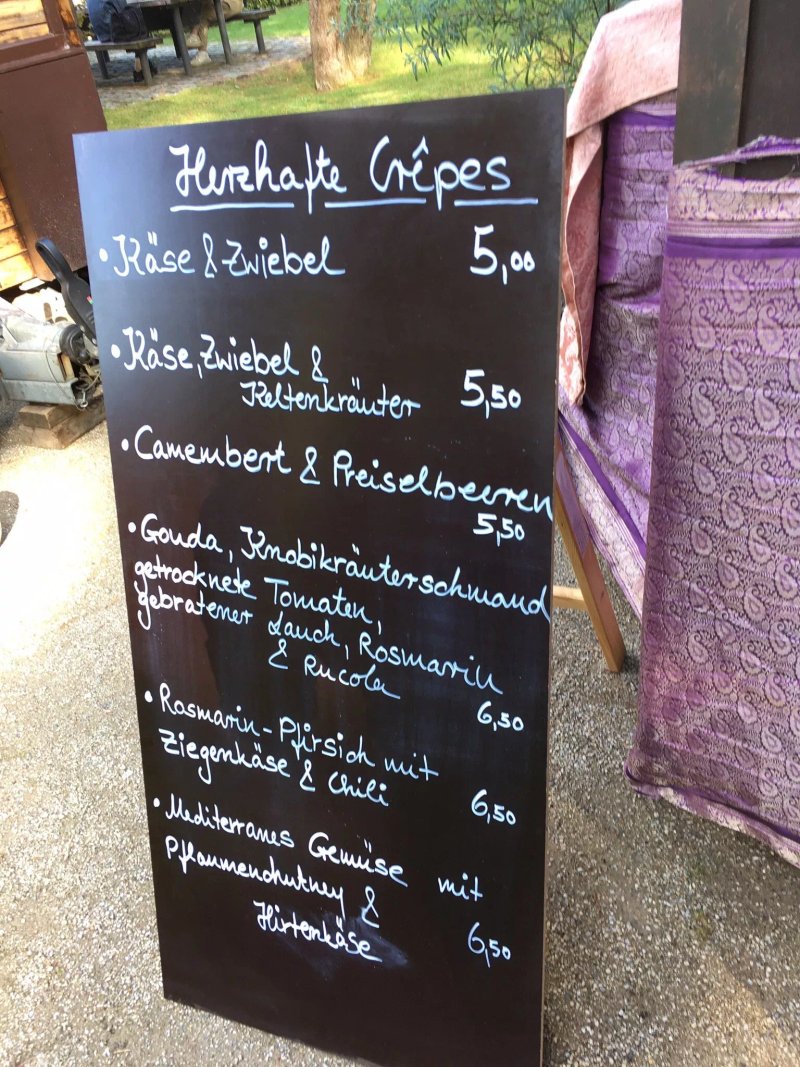 Herzhafte Crêpes
• Käse & Zwiebel 5,00
• Käse, Zwiebel &
Keltenkräuter 5,50
• Camembert & Preiselbeeren
5,50
• Gouda, Knobikräuterschmand
getrocknete Tomaten,
gebratener Lauch, Rosmarin
& Rucola
6,50
• Rosmarin-Pfirsich mit
Ziegenkäse & Chili 6,50
• Mediterranes Gemüse mit
Pflaumenchutney &
Hirtenkäse 6,50